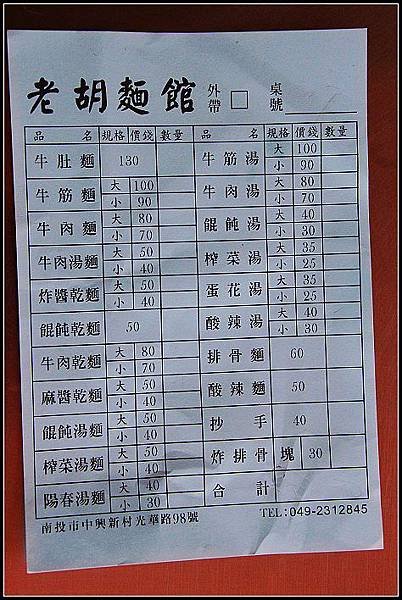 老胡麵館 外帶 □ 桌號
品名 規格 價錢 數量
牛肚麵 130
牛筋麵 大 100
小 90
牛肉麵 大 80
小 70
牛肉湯麵 大 50
小 40
炸醬乾麵 大 50
小 40
餛飩乾麵 50
牛肉乾麵 大 80
小 70
麻醬乾麵 大 50
小 40
餛飩湯麵 大 50
小 40
榨菜湯麵 大 50
小 40
陽春湯麵 大 40
小 30
品名 規格 價錢 數量
牛筋湯 大 100
小 90
牛肉湯 大 80
小 70
餛飩湯 大 40
小 30
榨菜湯 大 35
小 25
蛋花湯 大 35
小 25
酸辣湯 大 40
小 30
排骨麵 60
酸辣麵 50
抄手 40
炸排骨塊 30
合計
南投市中興新村光華路98號 TEL:049-2312845